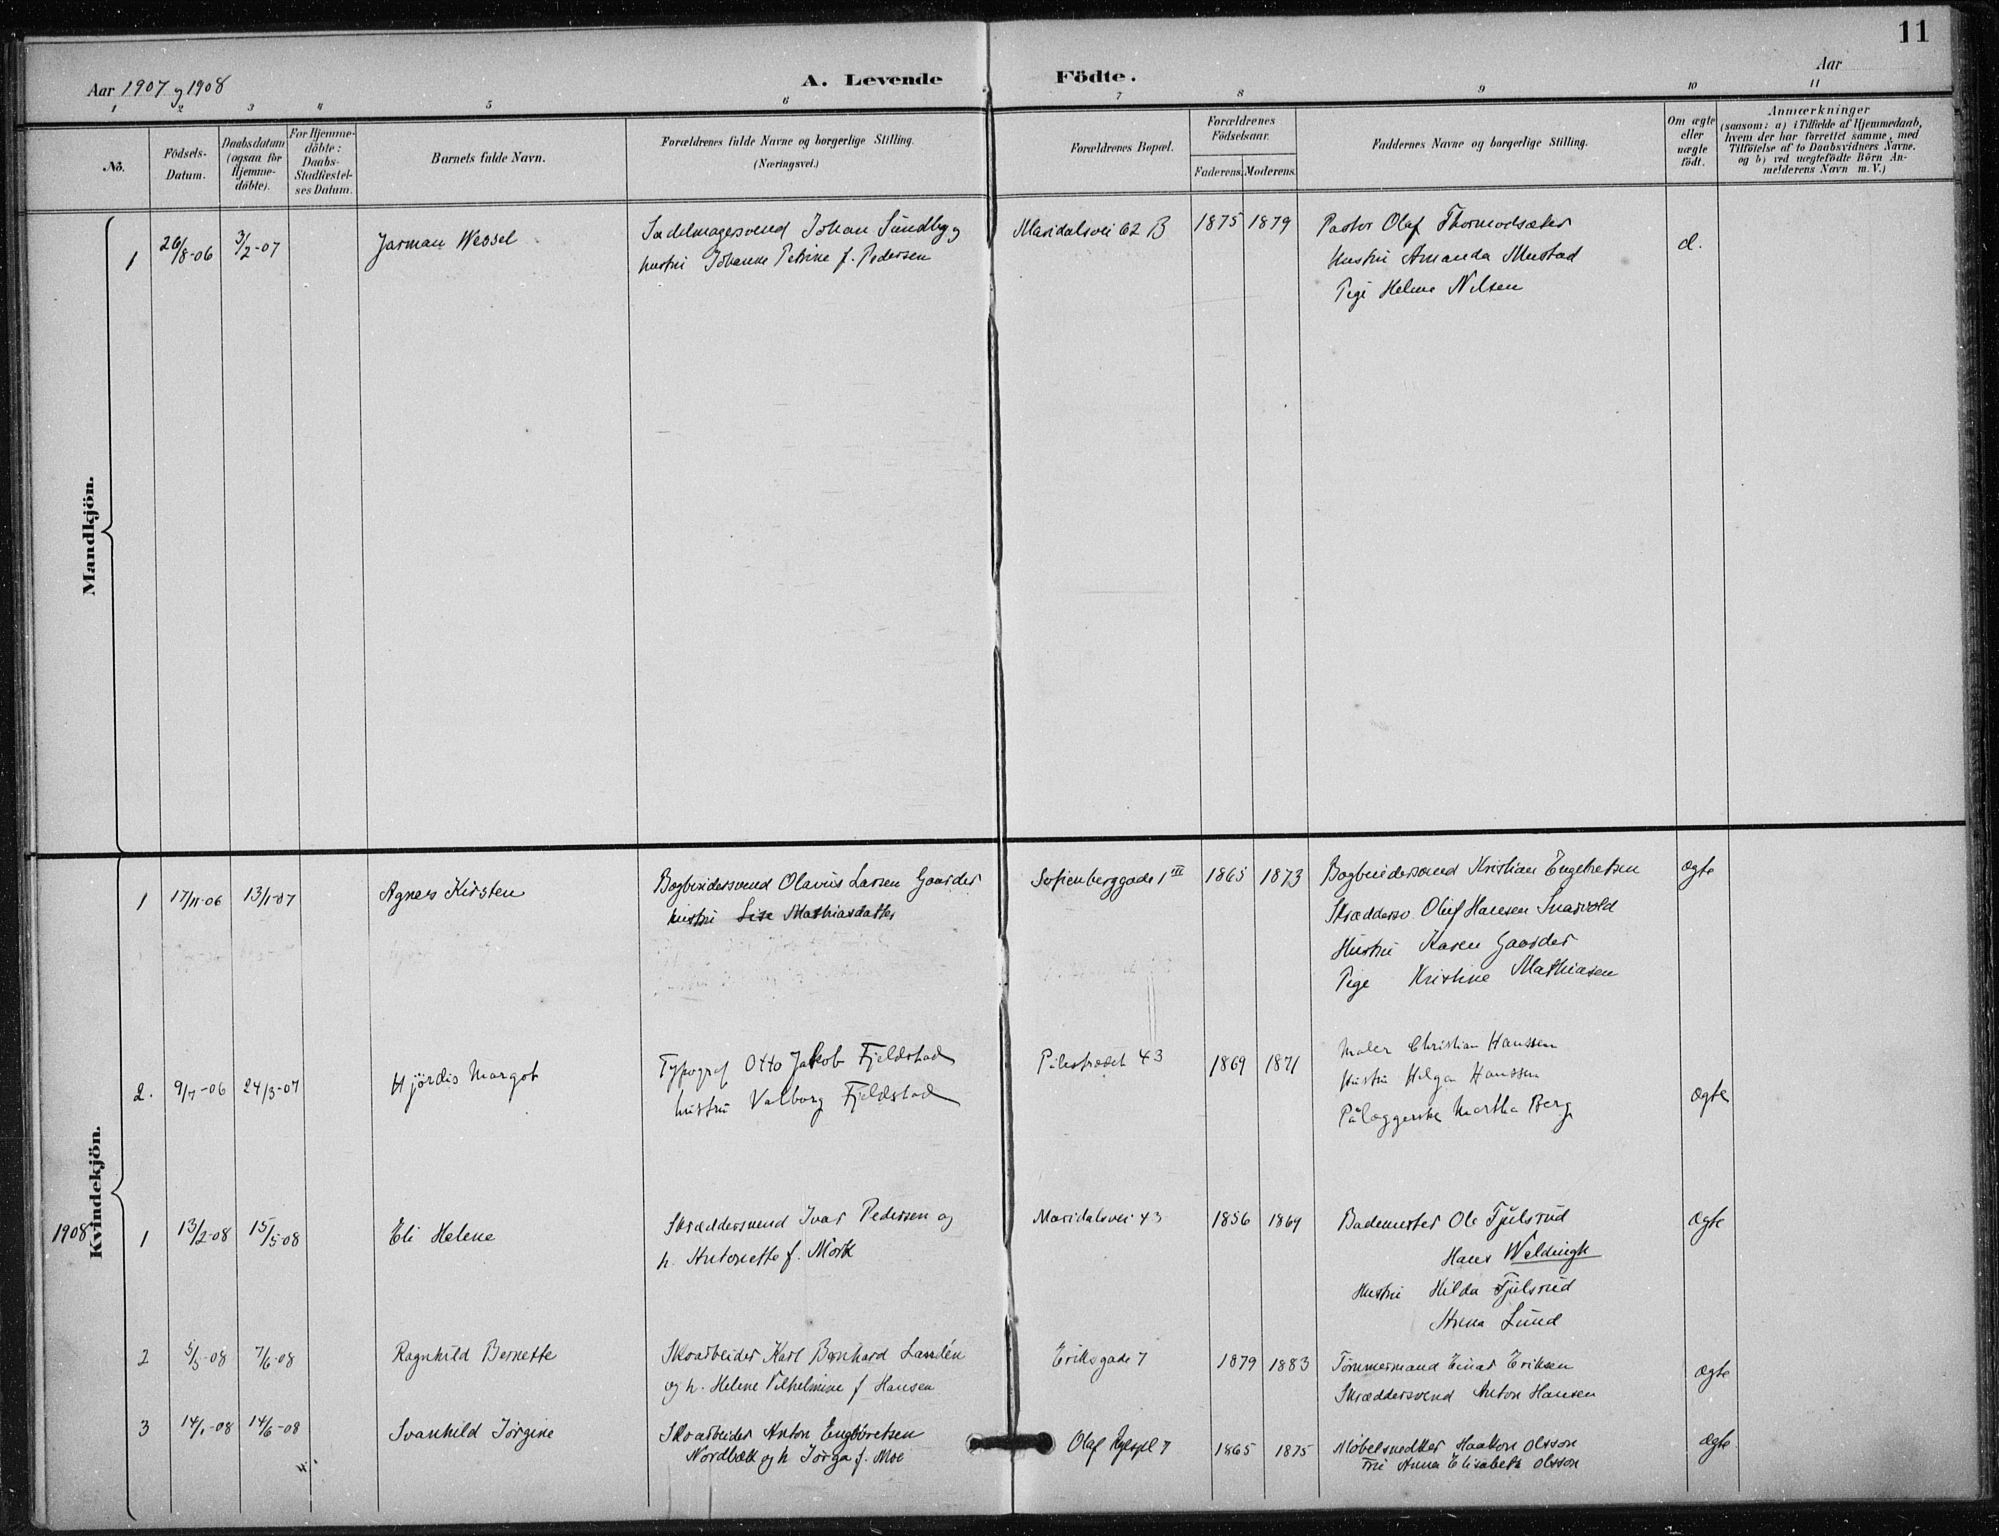 11
Aar 1907 og 1908
A. Levende Födte.
Aar
1 2 3 4 5 6 7 8 9 10 11
No.
Födsels-
Datum.
Daabsdatum
(ogsaa för
Hjemme-
döbte).
For Hjemme-
döbte:
Daabs-
Stadfæstel-
ses Datum.
Barnets fulde Navn.
Forældrenes fulde Navne og borgerlige Stilling.
(Næringsvei.)
Forældrenes Bopæl.
Forældrenes
Födselsaar.
Faderens. Moderens.
Faddernes Navne og borgerlige Stilling.
Om ægte
eller
uægte
födt.
Anmærkninger
(saasom: a) i Tilfælde af Hjemmedaab,
hvem der har forrettet samme, med
Tilföielse af to Daabsvidners Navne.
og b) ved uægtefödte Börn An-
melderens Navn m. V.)
Mandkjön.
1 26/8-06 3/2-07 Jarman Wessel
Sadelmagersvend Johan Sundby og
hustru Johanne Petrine f. Pedersen
Maridalsvei 62 B 1875 1879
Pastor Olaf Thormodsæter
Hustru Amanda Mustad
Pige Helene Nilsen
Kvindekjön.
1 17/11-06 13/1-07 Agnes Kirsten
Bogbindersvend Olavus Larsen Gaarder
hustru Lise Mathiasdatter
Sofienberggade 1 III 1865 1873
Bogbindersvend Kristian Engebretsen
Skræddersv. Oluf Hansen Snarvold
Hustru Karen Gaarder
Pige Kristine Mathiasen
ægte
2. 9/7-06 24/3-07 Hjördis Margot
Typograf Otto Jakob Fjeldstad
hustru Valborg Fjeldstad
Pilestrædet 43 1869 1871
Maler Christian Hanssen
Hustru Helga Hanssen
Pålæggerske Martha Berg
ægte
1908
1 13/2-08 15/5-08 Eli Helene
Skræddersvend Ivar Pedersen og
h. Antonette f. Mörk
Maridalsvei 43 1856 1864
Bademester Ole Tjulsrud
Hans Weldingh
Hustru Hilda Tjulsrud
Anna Lund
ægte
2 5/5-08 7/6-08 Ragnhild Bernette
Skoarbeider Karl Bernhard Landén
og h. Helene Vilhelmine f Hansen
Eriksgade 7 1879 1883
Tömmermand Einar Eriksen
Skræddersvend Anton Hansen
ægte
3 14/1-08 14/6-08 Svanhild Jörgine
Skoarbeider Anton Engbretsen
Nordbæk og h Jörga f. Moe
Olaf Ryespl 7 1865 1875
Möbelsnedker Haakon Olsson
Fru Anna Elisabeth Olsson
ægte